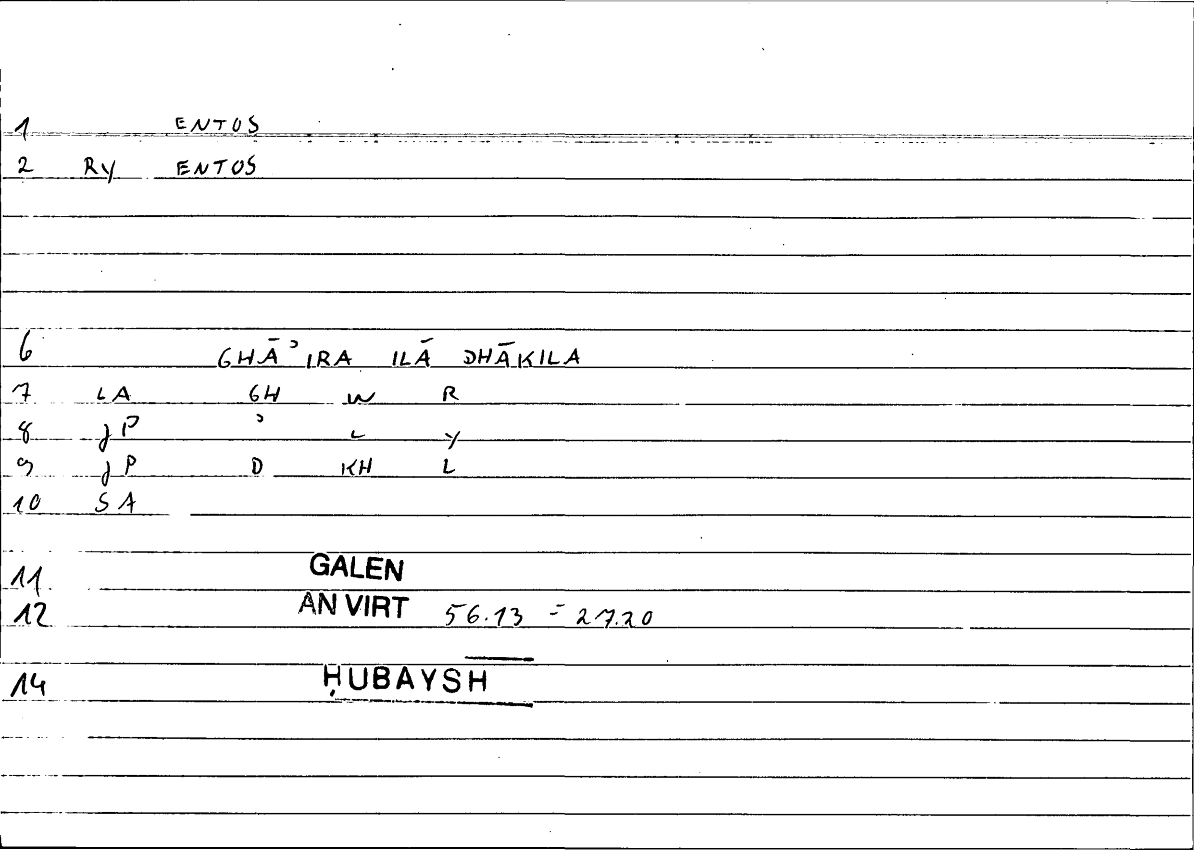 1 ENTOS
2 Ry ENTOS
6 GHĀʾIRA ILĀ DHĀKILA
7 LA GH W R
8 jP ʾ L Y
9 jP D KH L
10 SA
11 GALEN
12 AN VIRT 56.13 = 27.20
14 ḤUBAYSH